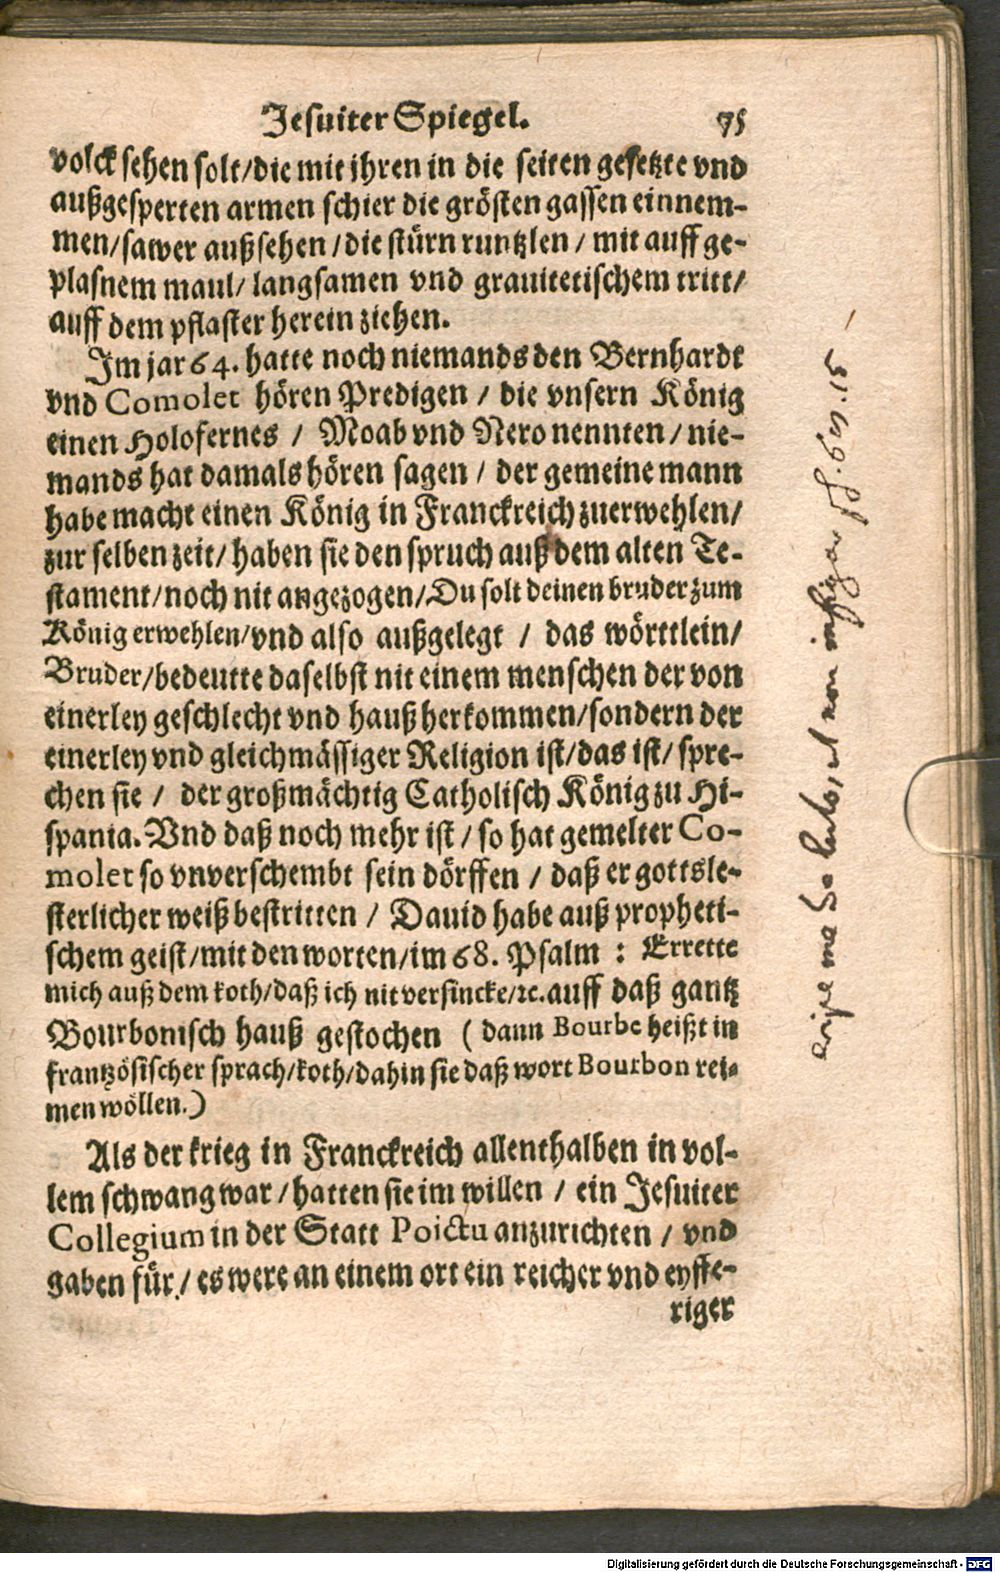 Jesuiter Spiegel. 75
volck sehen solt/die mit ihren in die seiten gesetzte vnd
außgesperten armen schier die grösten gassen einnem-
men/sawer außsehen/die stürn runtzlen/mit auff ge-
plasnem maul/langsamen vnd grauitetischem tritt/
auff dem pflaster herein ziehen.
Im jar 64. hatte noch niemands den Bernhardt
vnd Comolet hören Predigen/die vnsern König
einen Holofernes/Moab vnd Nero nennten/nie-
mands hat damals hören sagen/der gemeine mann
habe macht einen König in Franckreich zuerwehlen/
zur selben zeit/haben sie den spruch auß dem alten Te-
stament/noch nit angezogen/Du solt deinen bruder zum
König erwehlen/vnd also außgelegt/das wörttlein/
Bruder/bedeutte daselbst nit einem menschen der von
einerley geschlecht vnd hauß herkommen/sondern der
einerley vnd gleichmässiger Religion ist/das ist/spre-
chen sie/der großmächtig Catholisch König zu Hi-
spania. Vnd daß noch mehr ist/so hat gemelter Co-
molet so vnverschembt sein dörffen/daß er gottsle-
sterlicher weiß bestritten/Dauid habe auß propheti-
schem geist/mit den worten/im 68. Psalm: Errette
mich auß dem koth/daß ich nit versincke/ꝛc. auff daß gantz
Bourbonisch hauß gestochen (dann Bourbe heißt in
frantzösischer sprach/koth/dahin sie daß wort Bourbon rei-
men wöllen.)
Als der krieg in Franckreich allenthalben in vol-
lem schwang war/hatten sie im willen/ein Jesuiter
Collegium in der Statt Poictu anzurichten/vnd
gaben für/es were an einem ort ein reicher vnd eyffe-
riger
eripe me de luto, ut non infigar
Digitalisierung gefördert durch die Deutsche Forschungsgemeinschaft - DFG